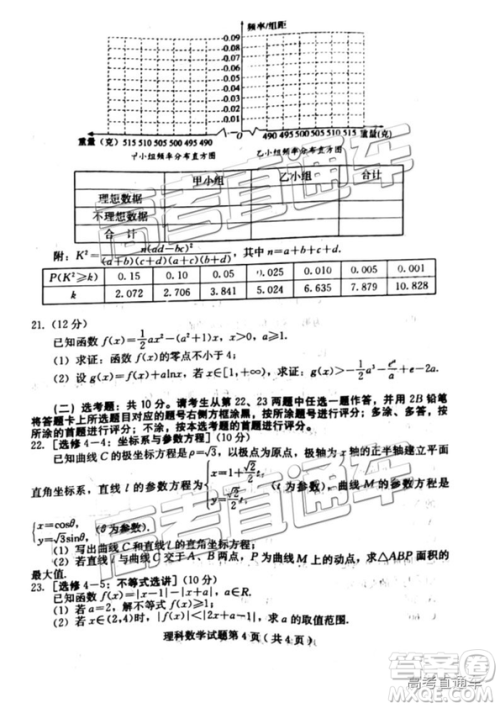 频率/组距
0.09
0.08
0.07
0.06
0.05
0.04
0.03
0.02
0.01
0
重量(克) 515 510 505 500 495 490
490 495 500 505 510 515 重量(克)
甲小组频率分布直方图
乙小组频率分布直方图
甲小组 乙小组 合计
理想数据
不理想数据
合 计
附:K²=n(ad-bc)²/(a+b)(c+d)(a+c)(b+d),其中n=a+b+c+d.
P(K²≥k) 0.15 0.10 0.05 0.025 0.010 0.005 0.001
k 2.072 2.706 3.841 5.024 6.635 7.879 10.828
21.(12分)
已知函数 f(x)=1/2ax²-(a²+1)x,x>0,a≥1.
(1) 求证:函数f(x)的零点不小于4;
(2) 设g(x)=f(x)+alnx,若x∈[1,+∞),求证:g(x)>-1/2a³-eᵃ/a+e-2a.
(二)选考题:共10分。请考生从第22、23两题中任选一题作答,并用2B铅笔
将答题卡上所选题目对应的题号右侧方框涂黑,按所涂题号进行评分;多涂、多答,按
所涂的首题进行评分;不涂,按本选考题的首题进行评分。
22.[选修4-4:坐标系与参数方程](10分)
已知曲线C的极坐标方程是ρ=√3,以极点为原点,极轴为x轴的正半轴建立平面
直角坐标系,直线l的参数方程为{x=1+√2/2t, y=√2/2t,(t为参数),曲线M的参数方程是
{x=cosθ, y=√3sinθ,(θ为参数).
(1) 写出曲线C和直线l的直角坐标方程;
(2) 若直线l与曲线C交于A、B两点,P为曲线M上的动点,求△ABP面积的
最大值.
23.[选修4-5:不等式选讲](10分)
已知函数f(x)=|x-1|+|x-a|.
(1) 若a=2,解不等式f(x)<3;
(2) 若x∈(2,4)时,|f(x)|<|2x-a-1|,求a的取值范围.
理科数学试题第4页(共4页)
高考直通车
高考直通车
高考直通车
答案圈